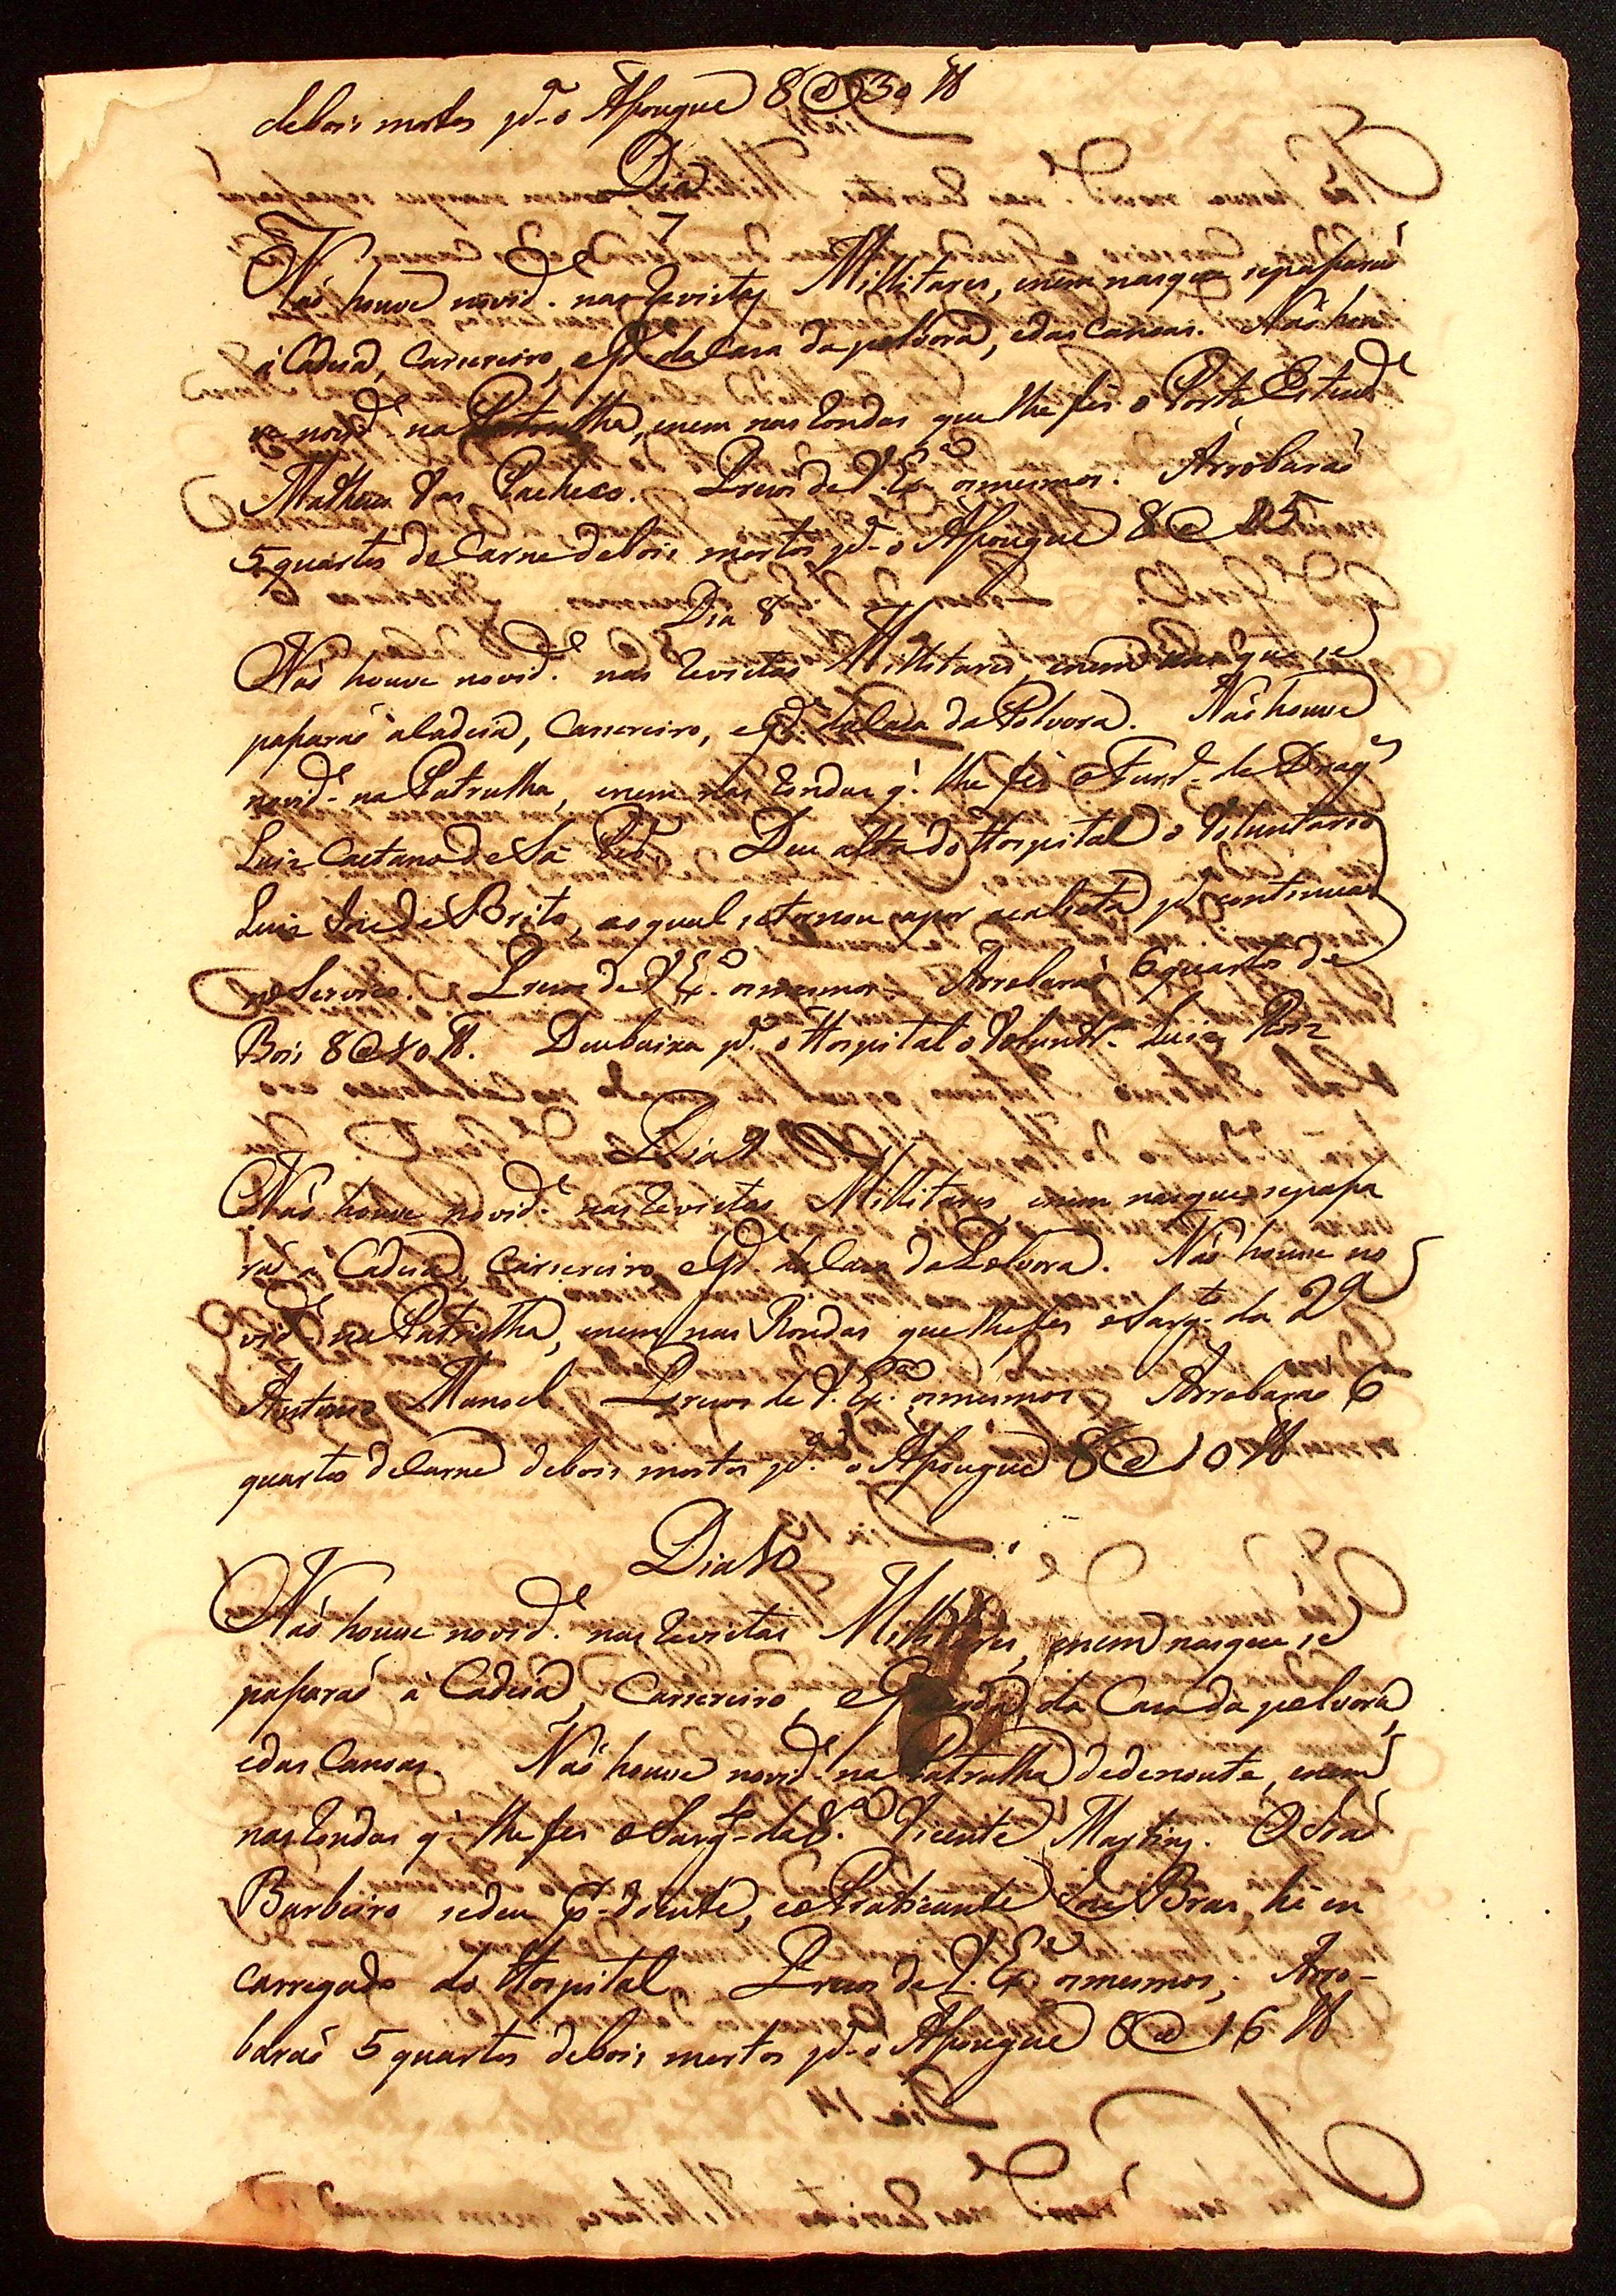 de bois mortos p.ª o Asougue 8 @ 30 ℔
Dia
7
Não houve novid.e nas Revistas Millitares, enem nas que se pasarão
á Cadeia, Carcereiro, e G.da da Casa da polvora, e das Canoas. Não hou
ve novid.e na Patrulha, enem nas Rondas que lhe fes o Porta Estend.e
Matheus Vas Pacheco. Prezos de V. Ex.ª os mesmos. Arrobarão
5 quartos de Carne de bois mortos p.ª o Asougue 8 @
Dia 8
Não houve novid.e nas Revistas Millitares, enem nas que se
pasarão a Cadeia, Carcereiro, e G.da da Casa da Polvora. Não houve
novid.e na Patrulha, enem nas Rondas q.' lhe fes o Furr.el de Drag.es
Luiz Caetano de Sá Deu alta do Hospital o Voluntario
Luiz Joze de Brito, ao qual se tornou a por a Cabeta p.ª continuar
no Servico. Prezos de V. Ex.ª os mesmos. Arrobarão 6 quartos de
Bois 8 @ ℔. Deu baixa p.ª o Hospital o Volunt.º Luiz Roiz
Dia 9
Não houve novid.e nas Revistas Millitares, enem nas que se pasa
rão á Cadeia, Carcereiro e G.da da Casa da Polvora. Não houve no
vid.e na Patrulha, enem nas Rondas que lhe fes o Sarg.to da 2ª
Antonio Manoel. Prezos de V. Ex.ª os mesmos Arrobarão 6
quartos de Carne de bois mortos p.ª o Asougue 8 @ 10 ℔
Dia 10
Não houve novid.e nas Revistas Millitares, enem nas que se
pasarão á Cadeia, Carcereiro, e Guarda da Casa da polvora,
e das Canoas. Não houve novid.e na Patrulha dedenoute, enem
nas Rondas q.' lhe fes o Sarg.to da 8.ª Vicente Martins. O
Barbeiro se deu p.r doente, e o Praticante Joze Bras, hé en
carregado do Hospital Prezos de V. Ex.ª os mesmos; Arro-
barão 5 quartos de bois mortos p.ª o Asougue 8 @ 16 ℔